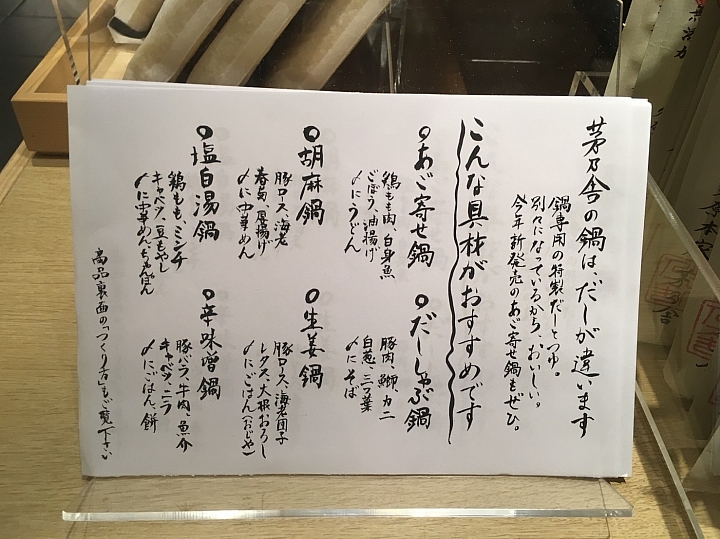 茅乃舎の鍋は、だしが違います
鍋専用の特製だしとつゆ。
別々になっているから、おいしい。
今年新発売のあご寄せ鍋もぜひ。
こんな具材がおすすめです
あご寄せ鍋
鶏もも肉、白身魚
ごぼう、油揚げ
〆にうどん
だししゃぶ鍋
豚肉、鰤、カニ
白葱、三つ葉
〆にそば
胡麻鍋
豚ロース、海老
春菊、厚揚げ
〆に中華めん
生姜鍋
豚ロース、海老団子
レタス、大根おろし
〆に、ごはん（おじや）
塩白湯鍋
鶏もも、ミンチ
キャベツ、豆もやし
〆に中華めん、ちゃんぽん
辛味噌鍋
豚バラ、牛肉、魚介
キャベツ、ニラ
〆に、ごはん、餅
商品裏面の「つくり方」もご覧下さい